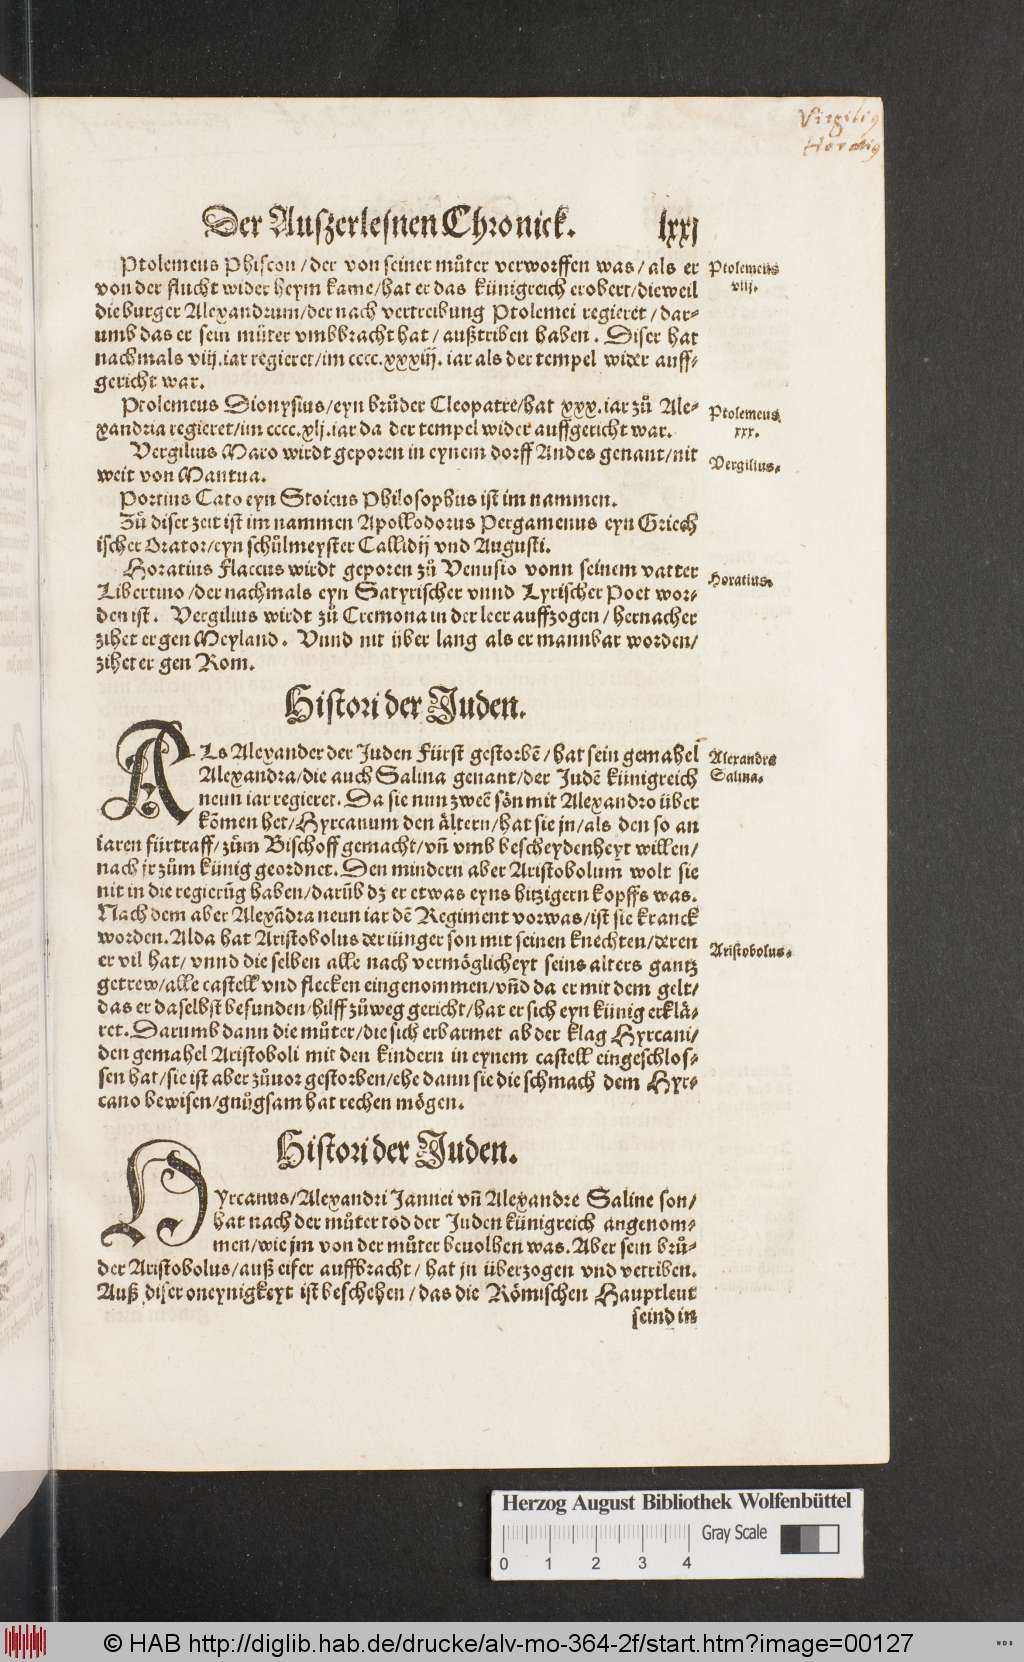 Virgiliꝰ
Horatiꝰ
Der Auſzerleſnen Chronick. lxxj
Ptolemeus Phiſcon / der von ſeiner můter verworffen was / als er
von der flucht wider heym kame / hat er das künigreich erobert / dieweil
die burger Alexandrum / der nach vertreibung Ptolemei regieret / dar⸗
umb das er ſein můter vmbbracht hat / außtriben haben. Diſer hat
nachmals viij. iar regieret / im cccc. xxxiij. iar als der tempel wider auff⸗
gericht war.
Ptolemeus
viij.
Ptolemeus Dionyſius / eyn brůder Cleopatre / hat xxx. iar zů Ale⸗
xandria regieret / im cccc. xlj. iar da der tempel wider auffgericht war.
Ptolemeus
xxx.
Vergilius Maro wirdt geporen in eynem dorff Andes genant / nit
weit von Mantua.
Vergilius.
Portius Cato eyn Stoicus Philoſophus iſt im nammen.
Zů diſer zeit iſt im nammen Apollodorus Pergamenus eyn Griech
iſcher Orator / eyn ſchůlmeyſter Callidij vnd Auguſti.
Horatius Flaccus wirdt geporen zů Venuſio vonn ſeinem vatter
Libertino / der nachmals eyn Satyriſcher vnnd Lyriſcher Poet wor⸗
den iſt. Vergilius wirdt zů Cremona in der leer auffzogen / hernacher
zihet er gen Meyland. Vnnd nit über lang als er mannbar worden /
zihet er gen Rom.
Horatius.
Hiſtori der Juden.
ALs Alexander der Juden Fürſt geſtorbē / hat ſein gemahel
Alexandra / die auch Salina genant / der Judē künigreich
neun iar regieret. Da ſie nun zween ſön mit Alexandro über
kōmen het / Hyrcanum den ältern / hat ſie jn / als den ſo an
iaren fürtraff / zům Biſchoff gemacht / vñ vmb beſcheydenheyt willen /
nach jr zům künig geordnet. Den mindern aber Ariſtobolum wolt ſie
nit in die regierūg haben / darūb dz er etwas eyns hitzigern kopffs was.
Nach dem aber Alexādra neun iar dē Regiment vorwas / iſt ſie kranck
worden. Alda hat Ariſtobolus der iünger ſon mit ſeinen knechten / deren
er vil hat / vnnd die ſelben alle nach vermöglicheyt ſeins alters gantz
getrew / alle caſtell vnd flecken eingenommen / vñd da er mit dem gelt /
das er daſelbſt befunden / hilff zůweg gericht / hat er ſich eyn künig erklä⸗
ret. Darumb dann die můter / die ſich erbarmet ab der klag Hyrcani /
den gemahel Ariſtoboli mit den kindern in eynem caſtell eingeſchloſ⸗
ſen hat / ſie iſt aber zůuor geſtorben / ehe dann ſie die ſchmach dem Hyr⸗
cano bewiſen / gnůgſam hat rechen mögen.
Alexandra
Salina.
Ariſtobolus.
Hiſtori der Juden.
Hyrcanus / Alexandri Jannei vñ Alexandre Saline ſon /
hat nach der můter tod der Juden künigreich angenom⸗
men / wie jm von der můter beuolhen was. Aber ſein brů⸗
der Ariſtobolus / auß eifer auffbracht / hat jn überzogen vnd vertriben.
Auß diſer oneynigkeyt iſt beſchehen / das die Römiſchen Hauptleut
ſeind in
Herzog August Bibliothek Wolfenbüttel
Gray Scale
0 1 2 3 4
© HAB http://diglib.hab.de/drucke/alv-mo-364-2f/start.htm?image=00127